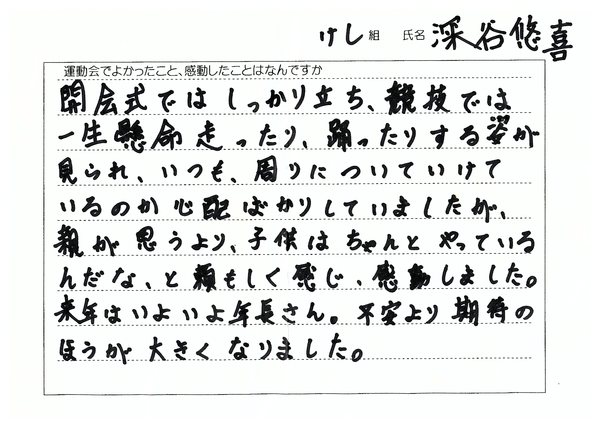 けし組 氏名 深谷悠喜
運動会でよかったこと、感動したことはなんですか
開会式では しっかり立ち、競技では
一生懸命走ったり、踊ったりする姿が
見られ、いつも、周りについていけて
いるのか心配ばかりしていましたが、
親が思うより、子供はちゃんとやっている
んだな、と頼もしく感じ、感動しました。
来年はいよいよ年長さん。不安より期待の
ほうが大きくなりました。